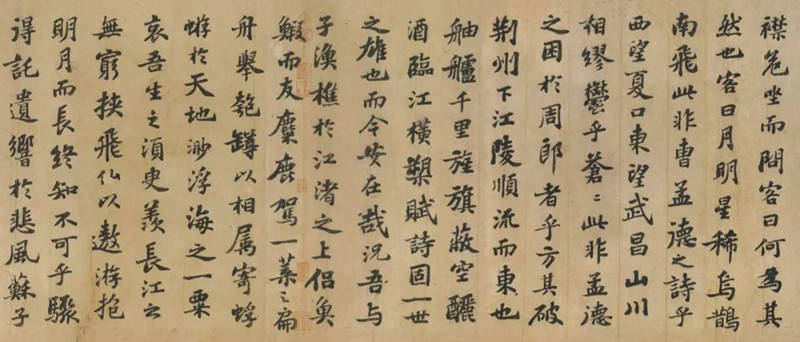 襟危坐而問客曰何為其
然也客曰月明星稀烏鵲
南飛此非曹孟德之詩乎
西望夏口東望武昌山川
相繆鬱乎蒼〻此非孟德
之困於周郎者乎方其破
荆州下江陵順流而東也
舳艫千里旌旗蔽空釃
酒臨江橫槊賦詩固一世
之雄也而今安在哉況吾與
子漁樵於江渚之上侶魚
鰕而友麋鹿駕一葉之扁
舟舉匏罇以相屬寄蜉
蝣於天地渺浮海之一粟
哀吾生之須臾羨長江之
無窮挾飛仙以遨游抱
明月而長終知不可乎驟
得託遺響於悲風蘇子